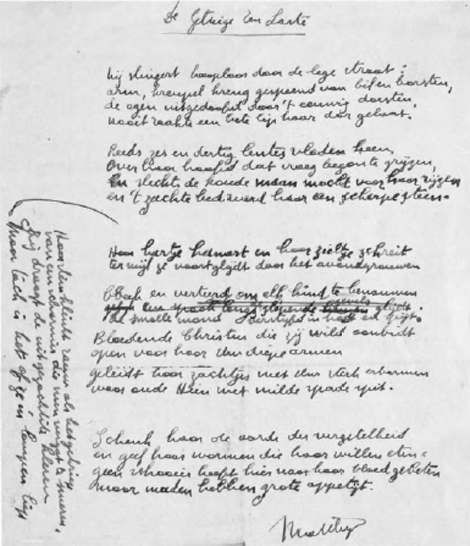 De Getuige Ten Laste
Zij slingert hooploos door de lege straat:
arm, kreupel kreng gespeend van bil en borsten,
de ogen uitgedoofd door 't eeuwig dorsten,
nooit raakte een hete lip haar dor gelaat.
Reeds zes en dertig lentes vloden heen
Over haar hoofd dat vroeg begon te grijzen,
En slechts de koude maan mocht voor haar rijzen
en 't zachte bed werd haar een scherpe steen.
Haar hartje hamert en haar zieltje schreit
terwijl ze voortglijdt door het avondgrauwen
bleek en verteerd om elk kind te benauwen
smalle mond
Bloedende Christus die zij wild aanbidt
open voor haar Uw diepe armen
geleidt haar zachtjes met Uw sterk erbarmen
naar oude Hein met milde spade spit.
Schenk haar de aarde der vergetelheid
en geef haar wormen die haar willen eten
geen heeft hier naar haar bloed gebeten
maar maden hebben grote appetijt.
Haar stem klinkt rauw als
van een die men vergat te smeren,
Zij draagt de kleren
Maar lach is of ze in lompen